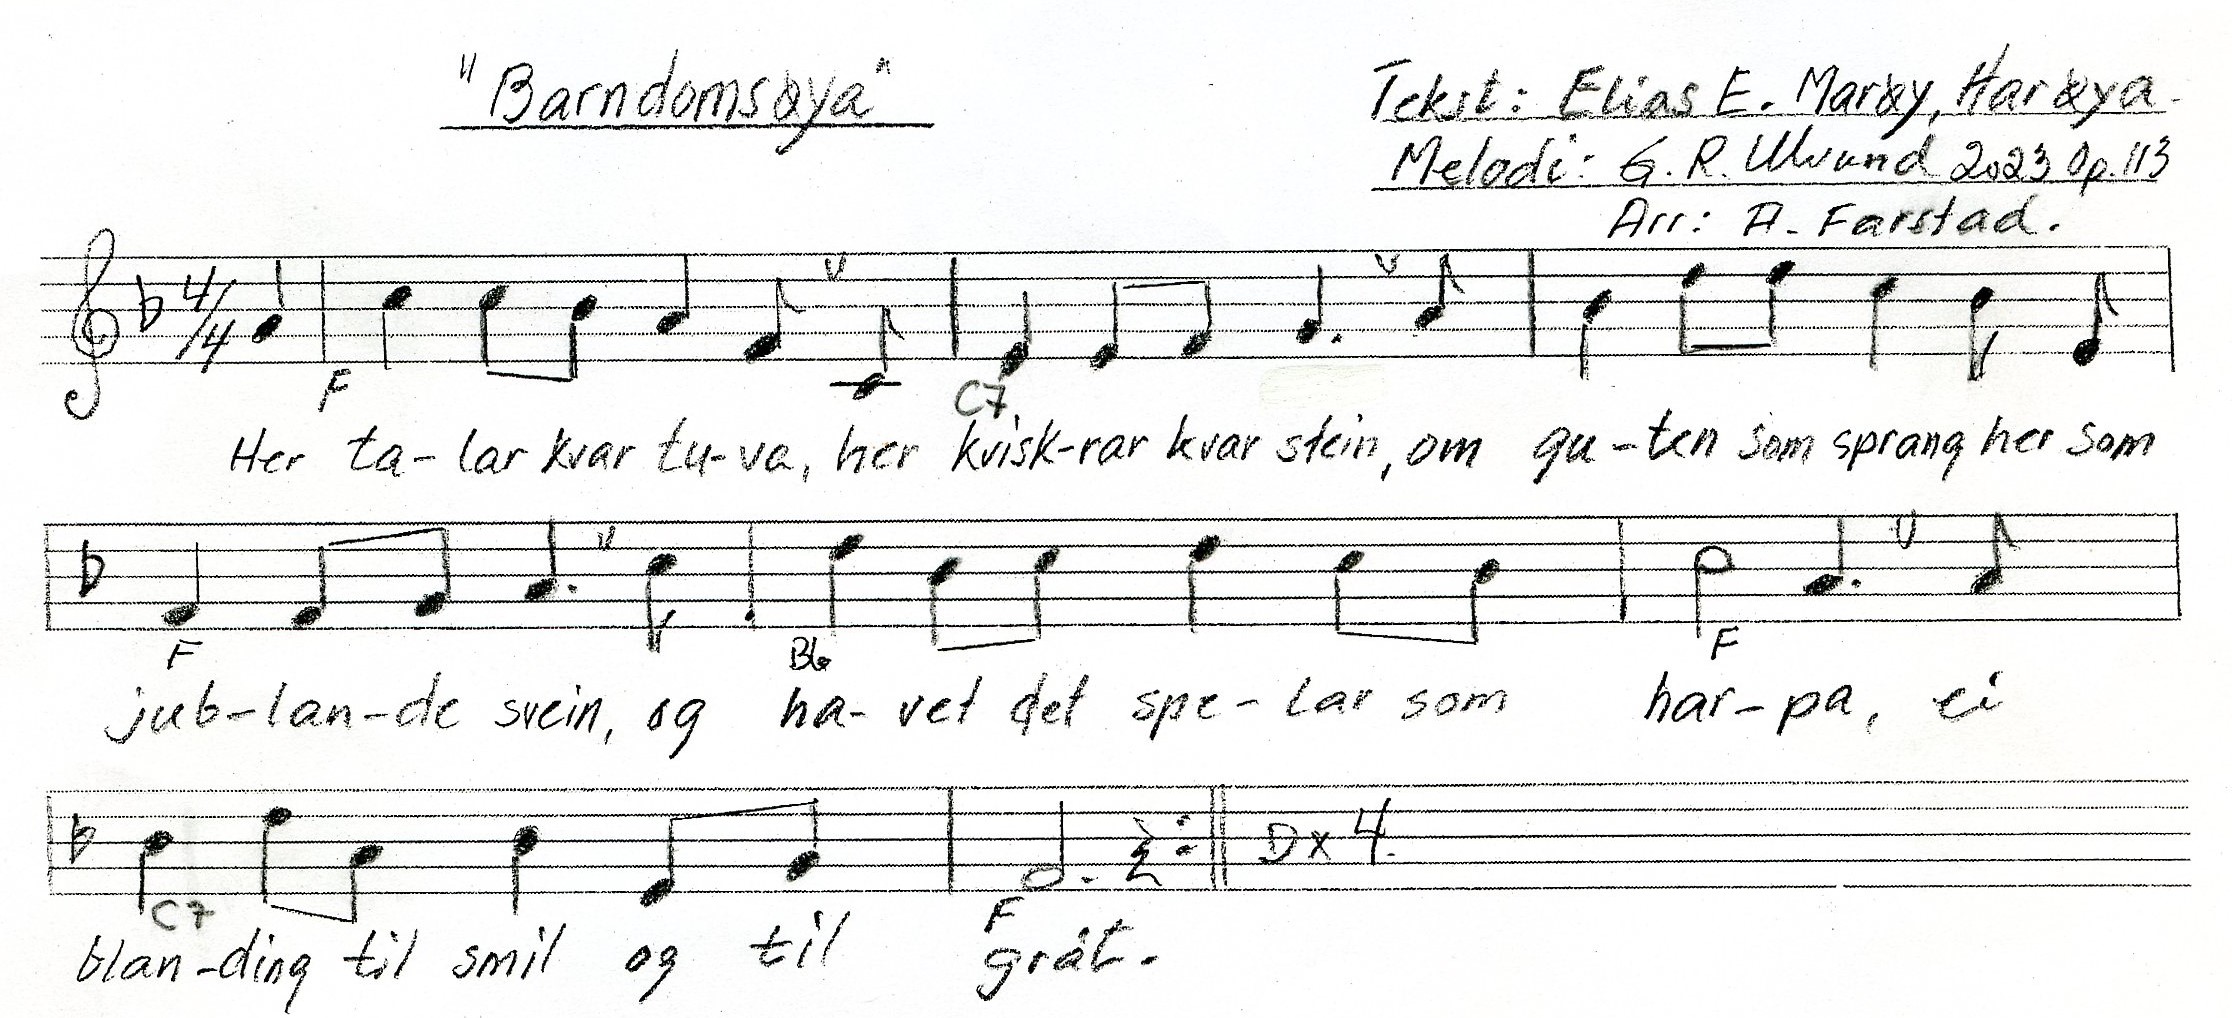 "Barndomsøya"
Tekst: Elias E. Marøy, Harøya.
Melodi: G. R. Ulvund 2023 Op. 113
Arr: A. Farstad.
4/4
F C7
Her ta-lar kvar tu-va, her kvisk-rar kvar stein, om gu-ten som sprang her som
F Bb F
jub-lan-de svein, og ha-vet det spe-lar som har-pa, ei
Dx 4.
C7 F
blan-ding til smil og til gråt.